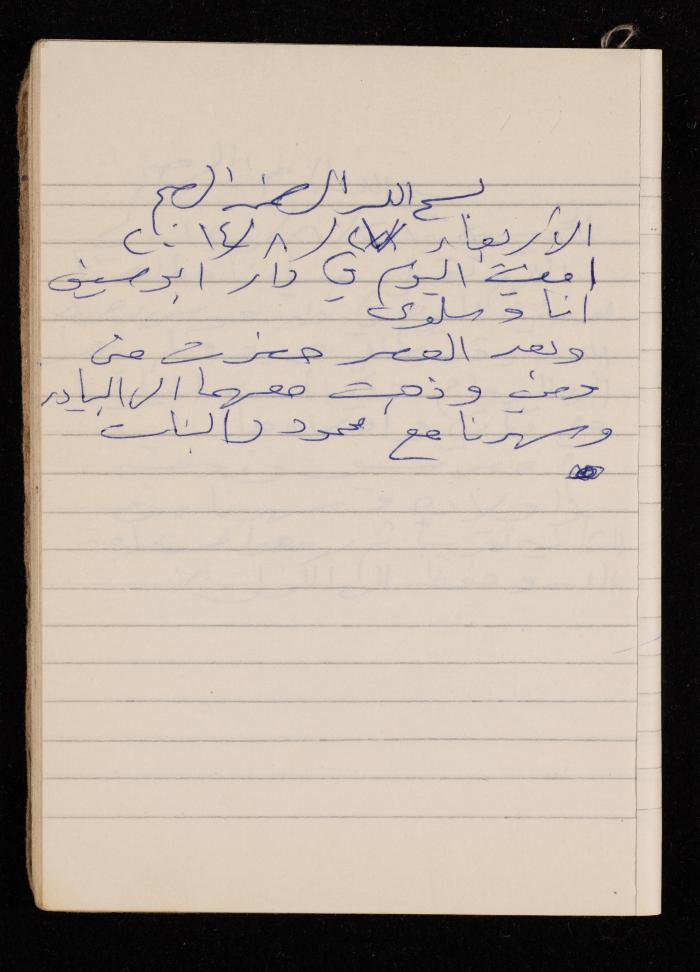 بسم الله الرحمن الرحيم
الأربعاء ٢٧/٨/٢٠١٤
امضيت اليوم في دار ابو ضيف
انا وسلوى
وبعد العصر حضرت منى
ومي وذهبت معهما الى البيادر
وسهرنا مع محمود والبنات